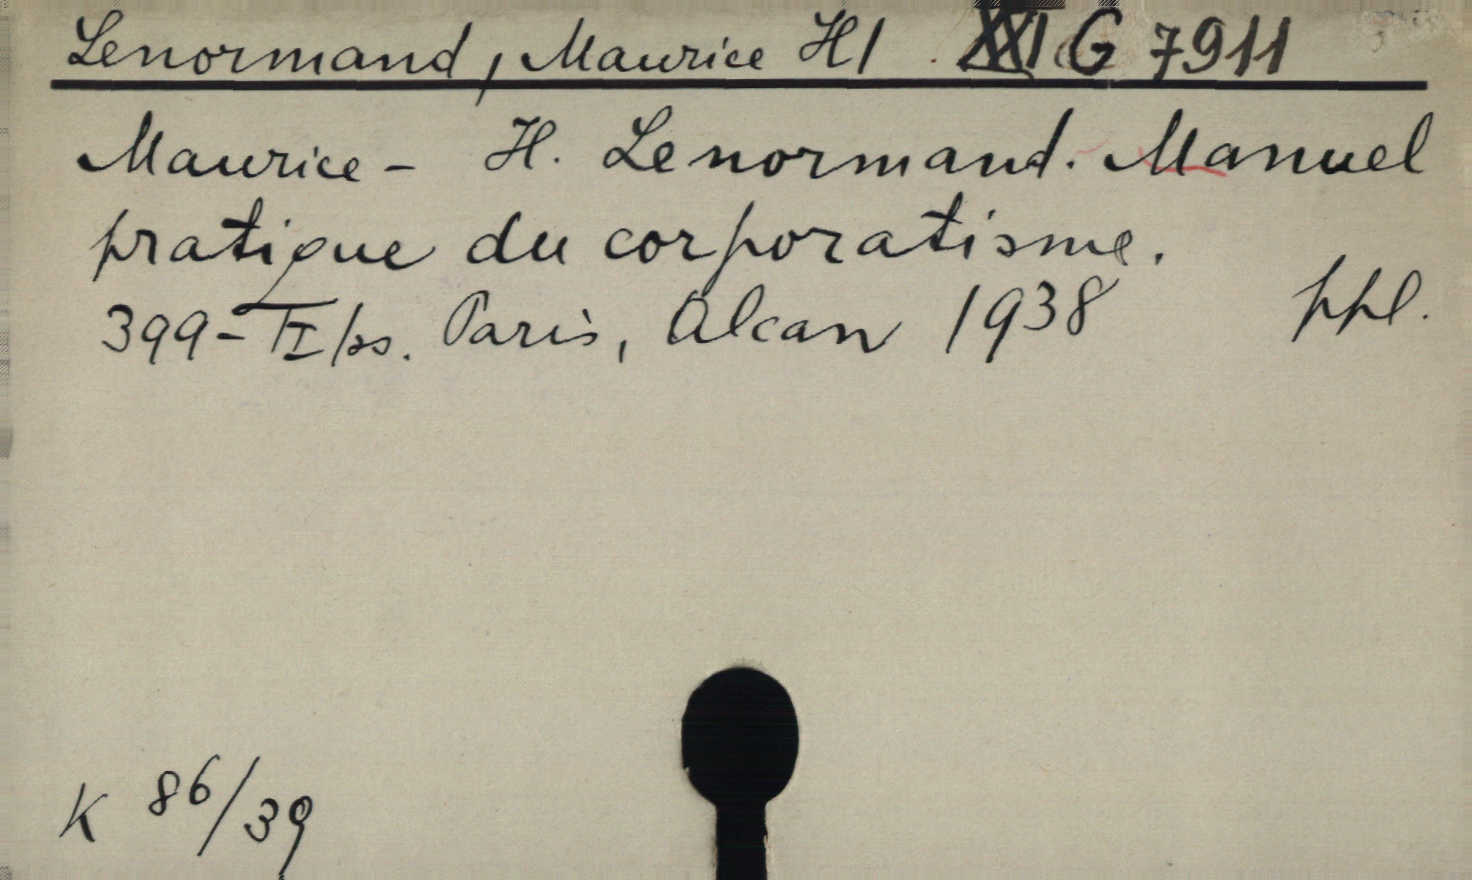 Lenormand, Maurice H/ . XXI G 7911
Maurice - H. Lenormand. Manuel
pratique du corporatisme.
399-II/ss. Paris, Alcan 1938 ppl.
K 86/39